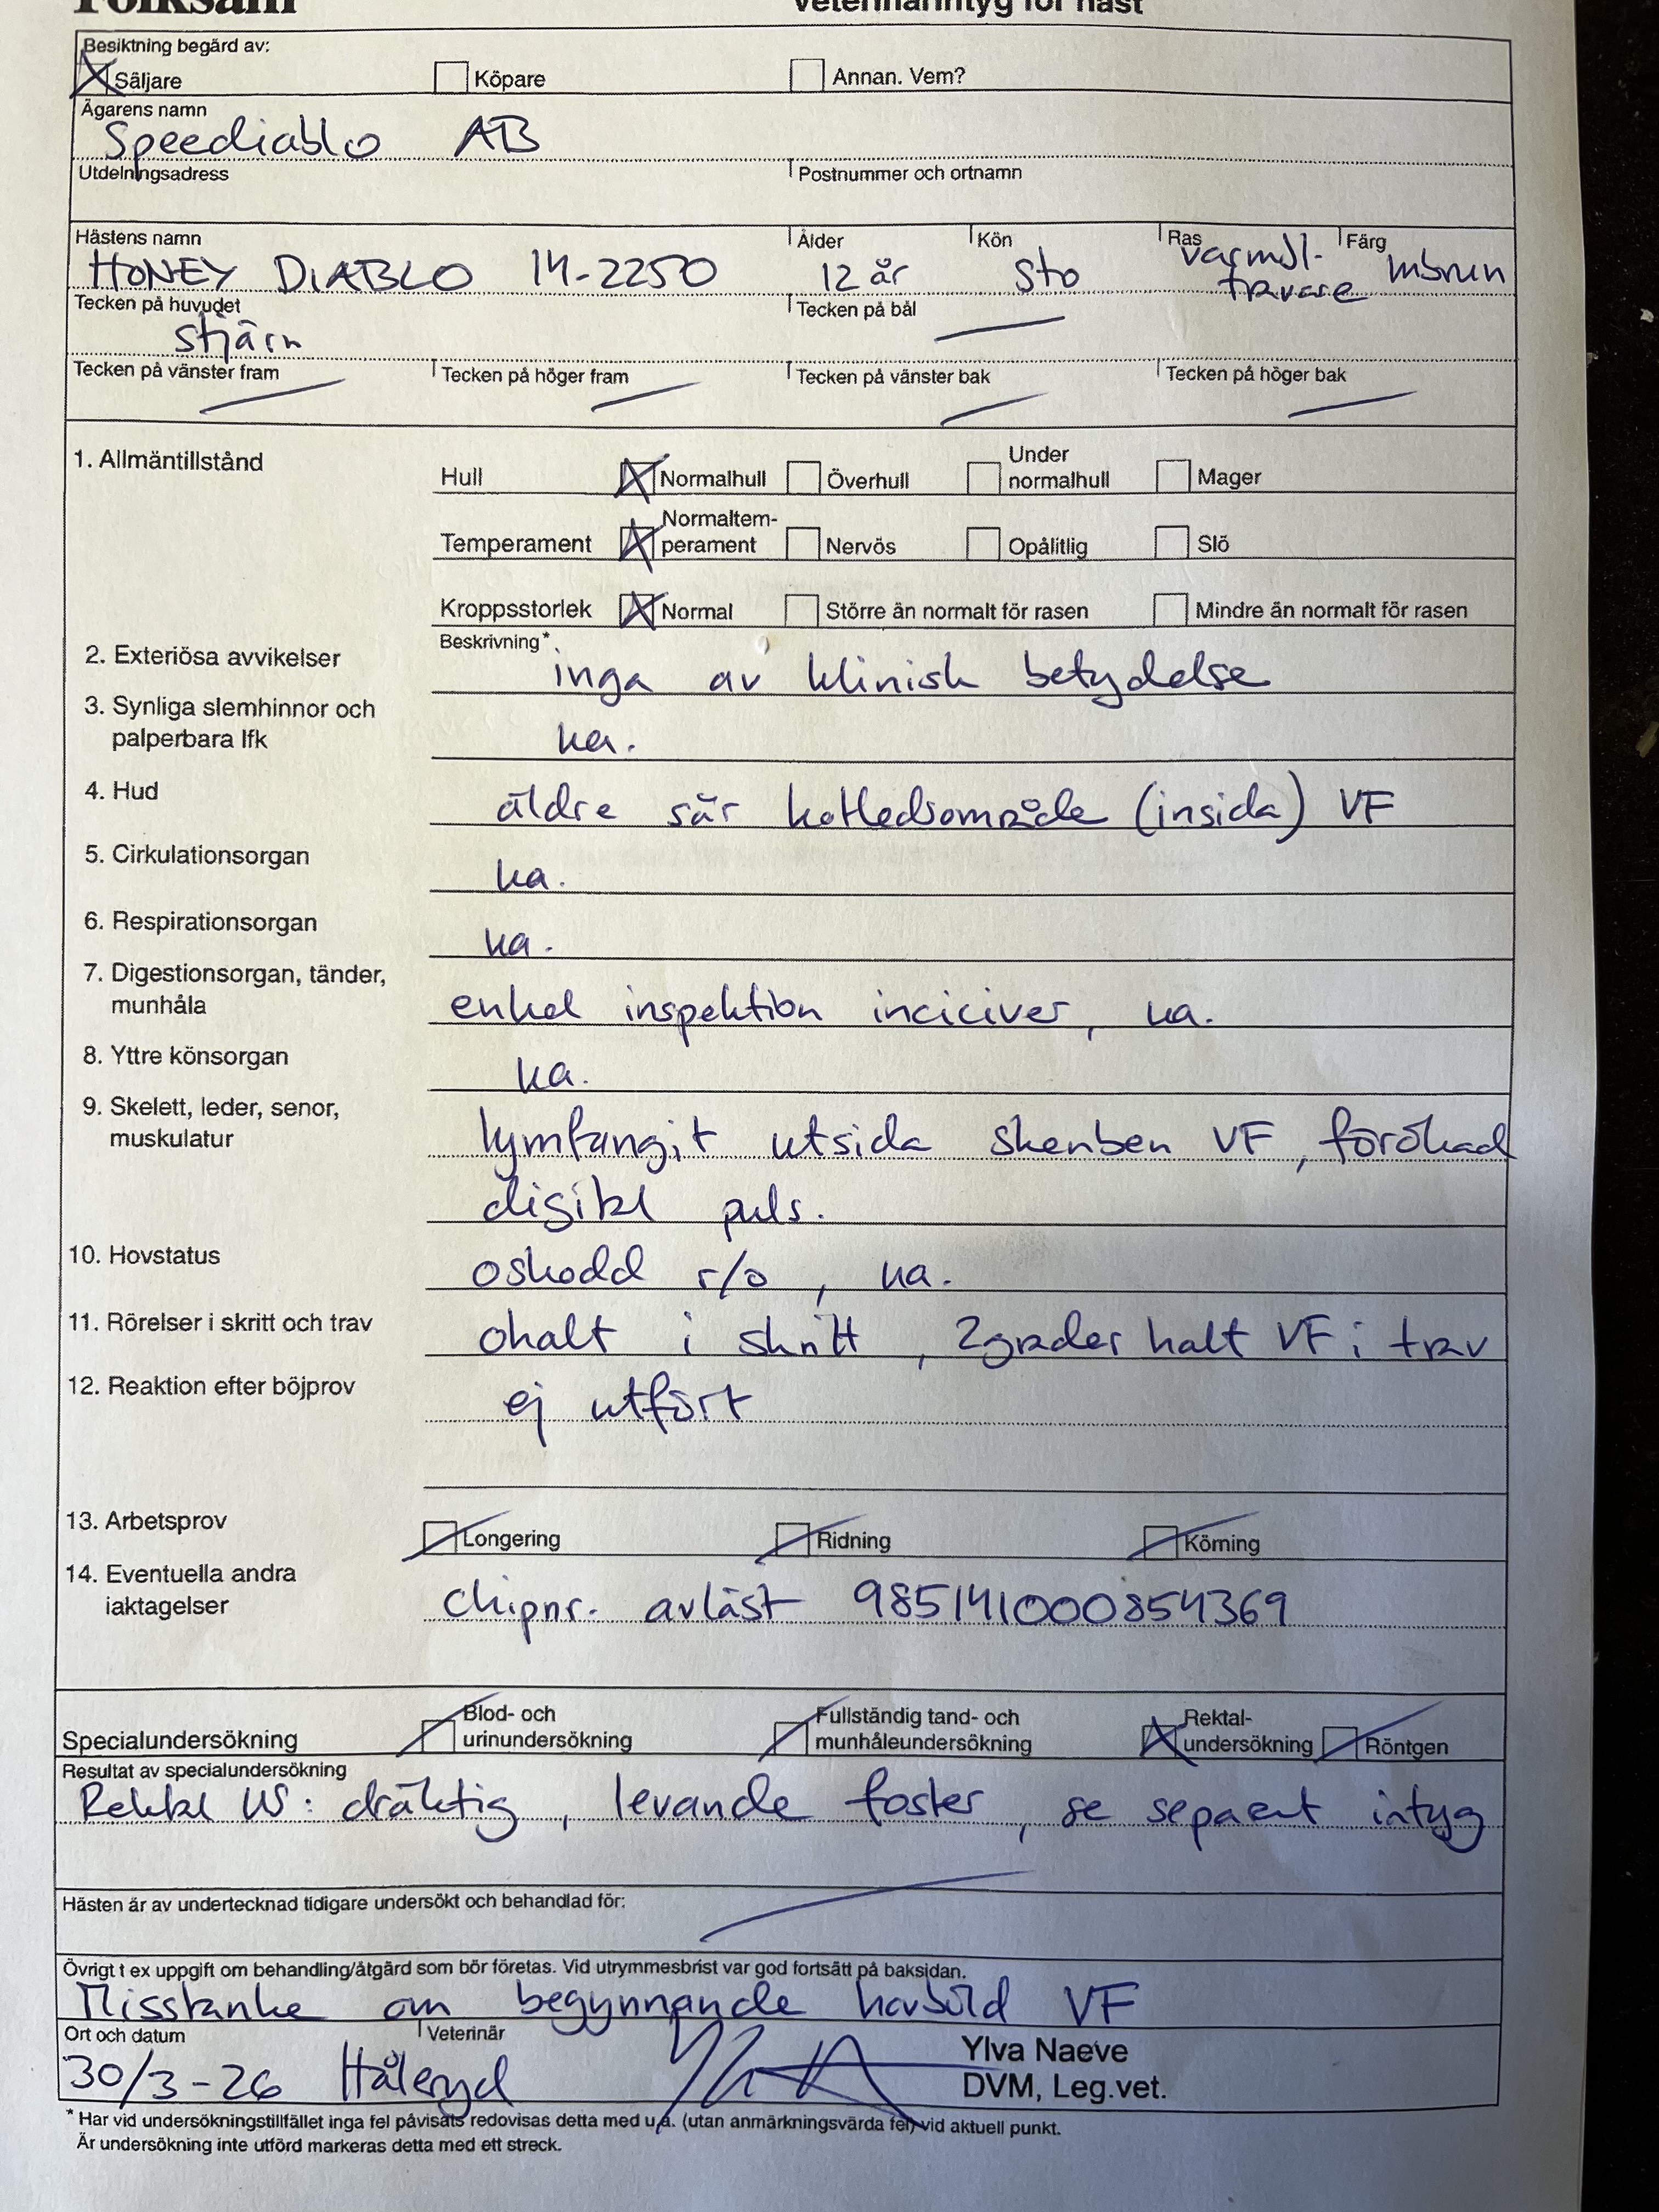 Folksam Veterinärintyg för häst
Besiktning begärd av:
Säljare Köpare Annan. Vem?
Ägarens namn
Speediablo AB
Utdelningsadress Postnummer och ortnamn
Hästens namn Ålder Kön Ras Färg
HONEY DIABLO 14-2250 12 år Sto varmbl- mbrun
travare
Tecken på huvudet Tecken på bål
stjärn
Tecken på vänster fram Tecken på höger fram Tecken på vänster bak Tecken på höger bak
1. Allmäntillstånd
Hull Normalhull Överhull Under normalhull Mager
Temperament Normaltem-
perament Nervös Opålitlig Slö
Kroppsstorlek Normal Större än normalt för rasen Mindre än normalt för rasen
Beskrivning*
2. Exteriösa avvikelser inga av klinisk betydelse
3. Synliga slemhinnor och
palperbara lfk ua.
4. Hud äldre sår kotledsområde (insida) VF
5. Cirkulationsorgan ua.
6. Respirationsorgan ua.
7. Digestionsorgan, tänder,
munhåla enkel inspektion inciciver, ua.
8. Yttre könsorgan ua.
9. Skelett, leder, senor,
muskulatur lymfangit utsida skenben VF, förökad
digital puls.
10. Hovstatus oskodd r/o, ua.
11. Rörelser i skritt och trav ohalt i skritt, 2grader halt VF i trav
12. Reaktion efter böjprov ej utfört
13. Arbetsprov Longering Ridning Körning
14. Eventuella andra
iaktagelser chipnr. avläst 985141000854369
Specialundersökning Blod- och
urinundersökning Fullständig tand- och
munhåleundersökning Rektal-
undersökning Röntgen
Resultat av specialundersökning
Rektal US: dräktig, levande foster, se separat intyg
Hästen är av undertecknad tidigare undersökt och behandlad för:
Övrigt t ex uppgift om behandling/åtgärd som bör företas. Vid utrymmesbrist var god fortsätt på baksidan.
Misstanke om begynnande hovböld VF
Ort och datum Veterinär
30/3-26 Håleryd
Ylva Naeve
DVM, Leg.vet.
* Har vid undersökningstillfället inga fel påvisats redovisas detta med u,a. (utan anmärkningsvärda fel) vid aktuell punkt.
Är undersökning inte utförd markeras detta med ett streck.